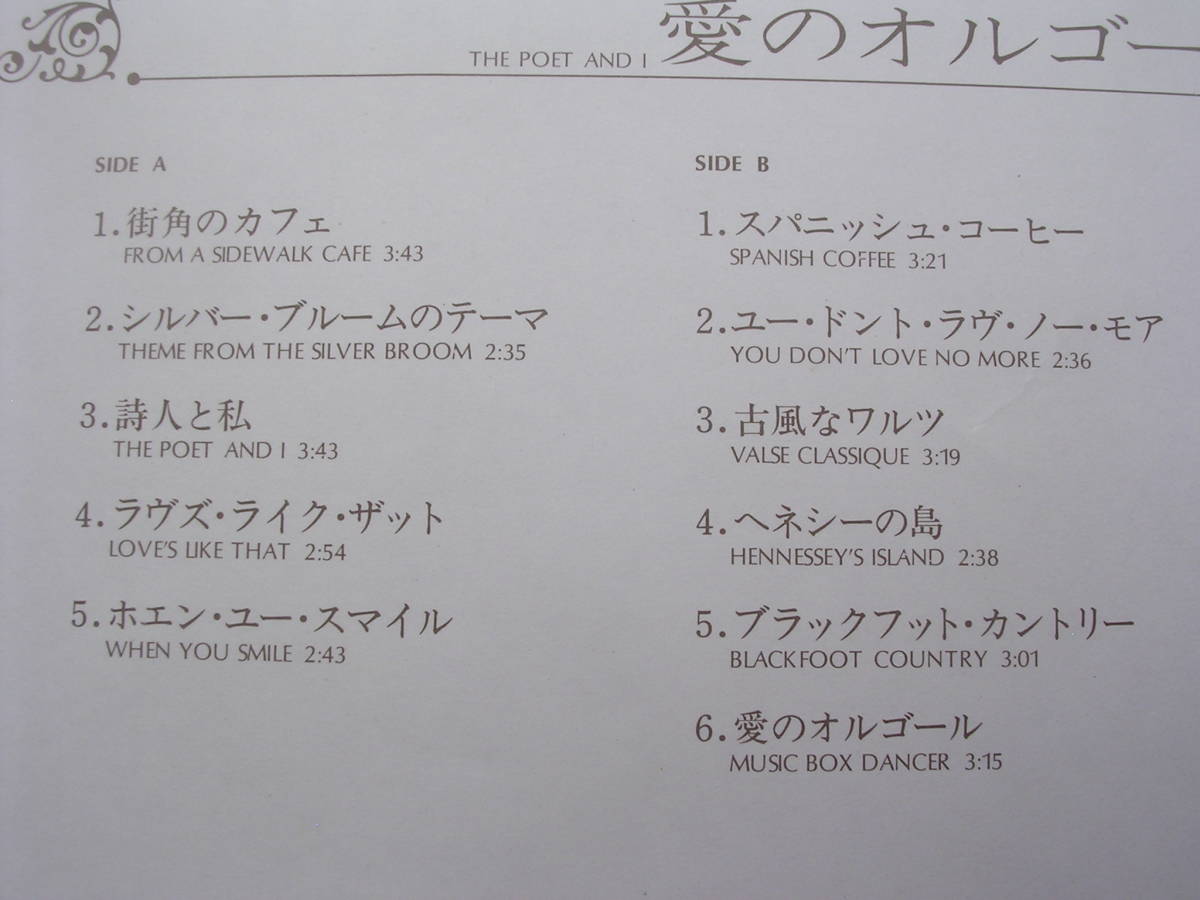 THE POET AND I 愛のオルゴー
SIDE A
1.街角のカフェ
FROM A SIDEWALK CAFE 3:43
2.シルバー・ブルームのテーマ
THEME FROM THE SILVER BROOM 2:35
3.詩人と私
THE POET AND I 3:43
4.ラヴズ・ライク・ザット
LOVE'S LIKE THAT 2:54
5.ホエン・ユー・スマイル
WHEN YOU SMILE 2:43
SIDE B
1.スパニッシュ・コーヒー
SPANISH COFFEE 3:21
2.ユー・ドント・ラヴ・ノー・モア
YOU DON'T LOVE NO MORE 2:36
3.古風なワルツ
VALSE CLASSIQUE 3:19
4.ヘネシーの島
HENNESSEY'S ISLAND 2:38
5.ブラックフット・カントリー
BLACKFOOT COUNTRY 3:01
6.愛のオルゴール
MUSIC BOX DANCER 3:15